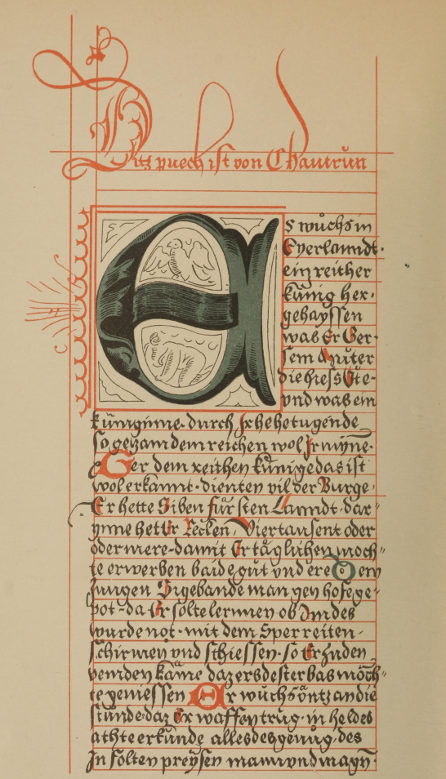 Ditz puech ist von Chautrŭn
Es wuͦchs in
Eyerlanndt·
ein reicher
kŭnig her·
gehayssen
was Er Ger·
sein Mŭter
die hiess Ŭte·
vnd was ein
kŭniginne· durch Jr hohe tugende
so gezam dem reichen wol Jr mynne·
Ger dem reichen kŭnige das ist
wol erkannt· dienten vil der Burge·
Er hette Siben fŭrsten Lanndt· dar·
ynne het Er Recken, Viertausent oder
oder mere· damit Er täglichen moch⸗
te erwerben baide gŭt vnd ere Dem
Jungen Sigebande man gen hofe ge·
pot· da Er solte lernnen ob Im des
wurde not· mit dem Sper reiten·
schirmen vnd schiessen· so Er zu den
veinden käme daz ers dester bas möch⸗
te geniessen Er wuͦchs ŭntz an die
stŭnde daz Er waffen trŭg· in heldes
achte erkŭnde alles des genŭg· des
In solten preysen mann vnd magn